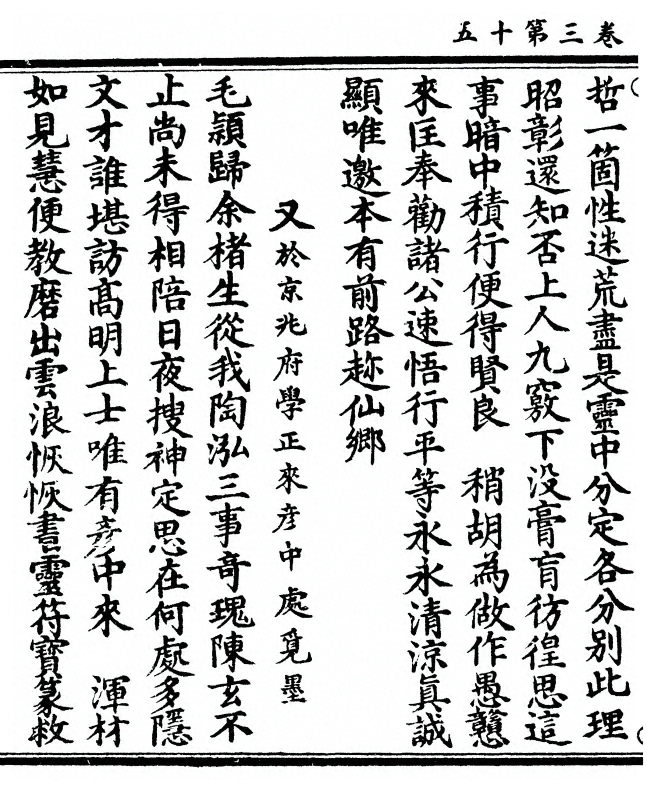 卷三第十五
哲一箇性迷荒盡是靈中分定各分別此理
昭彰還知否上人九竅下没膏肓彷徨思這
事暗中積行便得賢良　稍胡為做作愚戇
來匡奉勸諸公速悟行平等永永清涼真誠
顯唯邀本有前路趂仙鄉
又於京兆府學正來彦中處覓墨
毛頴歸余楮生從我陶泓三事竒瑰陳玄不
止尚未得相陪日夜搜神定思在何處多隱
文才誰堪訪髙明上士唯有彦中來　渾材
如見慧便教磨出雲浪恢恢書靈符寶篆救